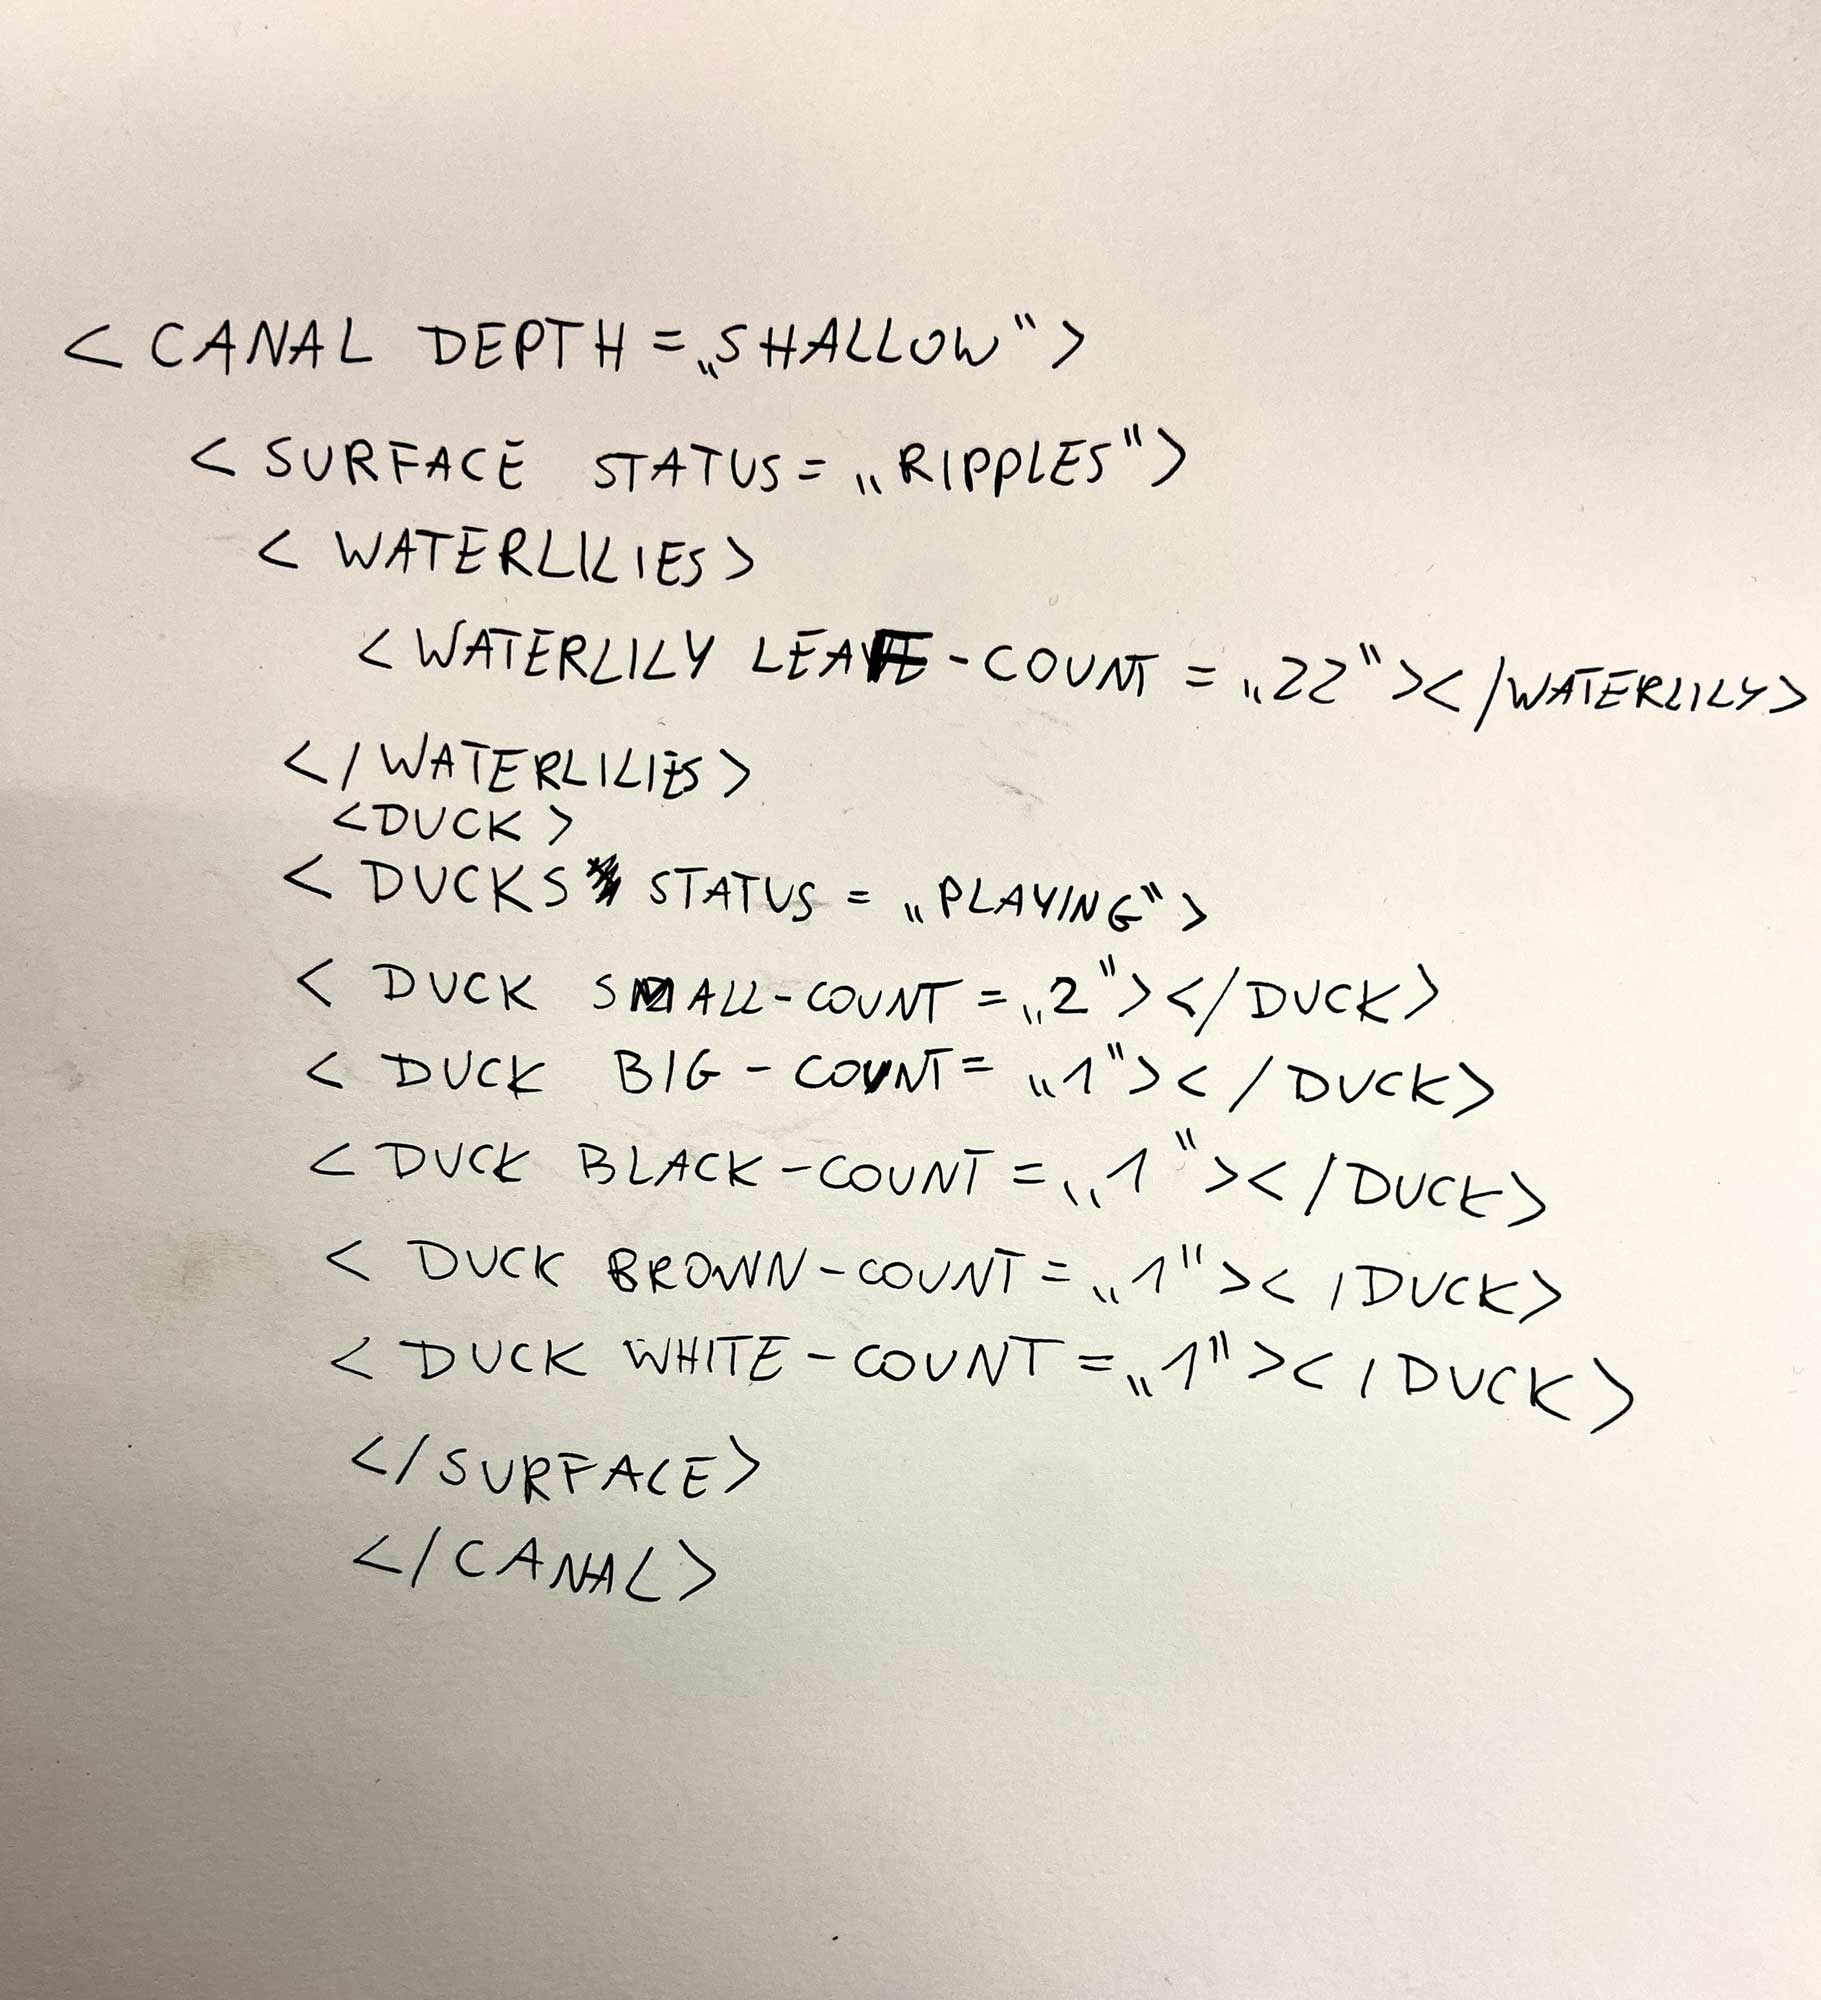 <CANAL DEPTH=„SHALLOW“>
<SURFACE STATUS=„RIPPLES“>
<WATERLILIES>
<WATERLILY LEAF-COUNT=„22“></WATERLILY>
</WATERLILIES>
<DUCK>
<DUCKS STATUS=„PLAYING“>
<DUCK SMALL-COUNT=„2“></DUCK>
<DUCK BIG-COUNT=„1“></DUCK>
<DUCK BLACK-COUNT=„1“></DUCK>
<DUCK BROWN-COUNT=„1“></DUCK>
<DUCK WHITE-COUNT=„1“></DUCK>
</SURFACE>
</CANAL>